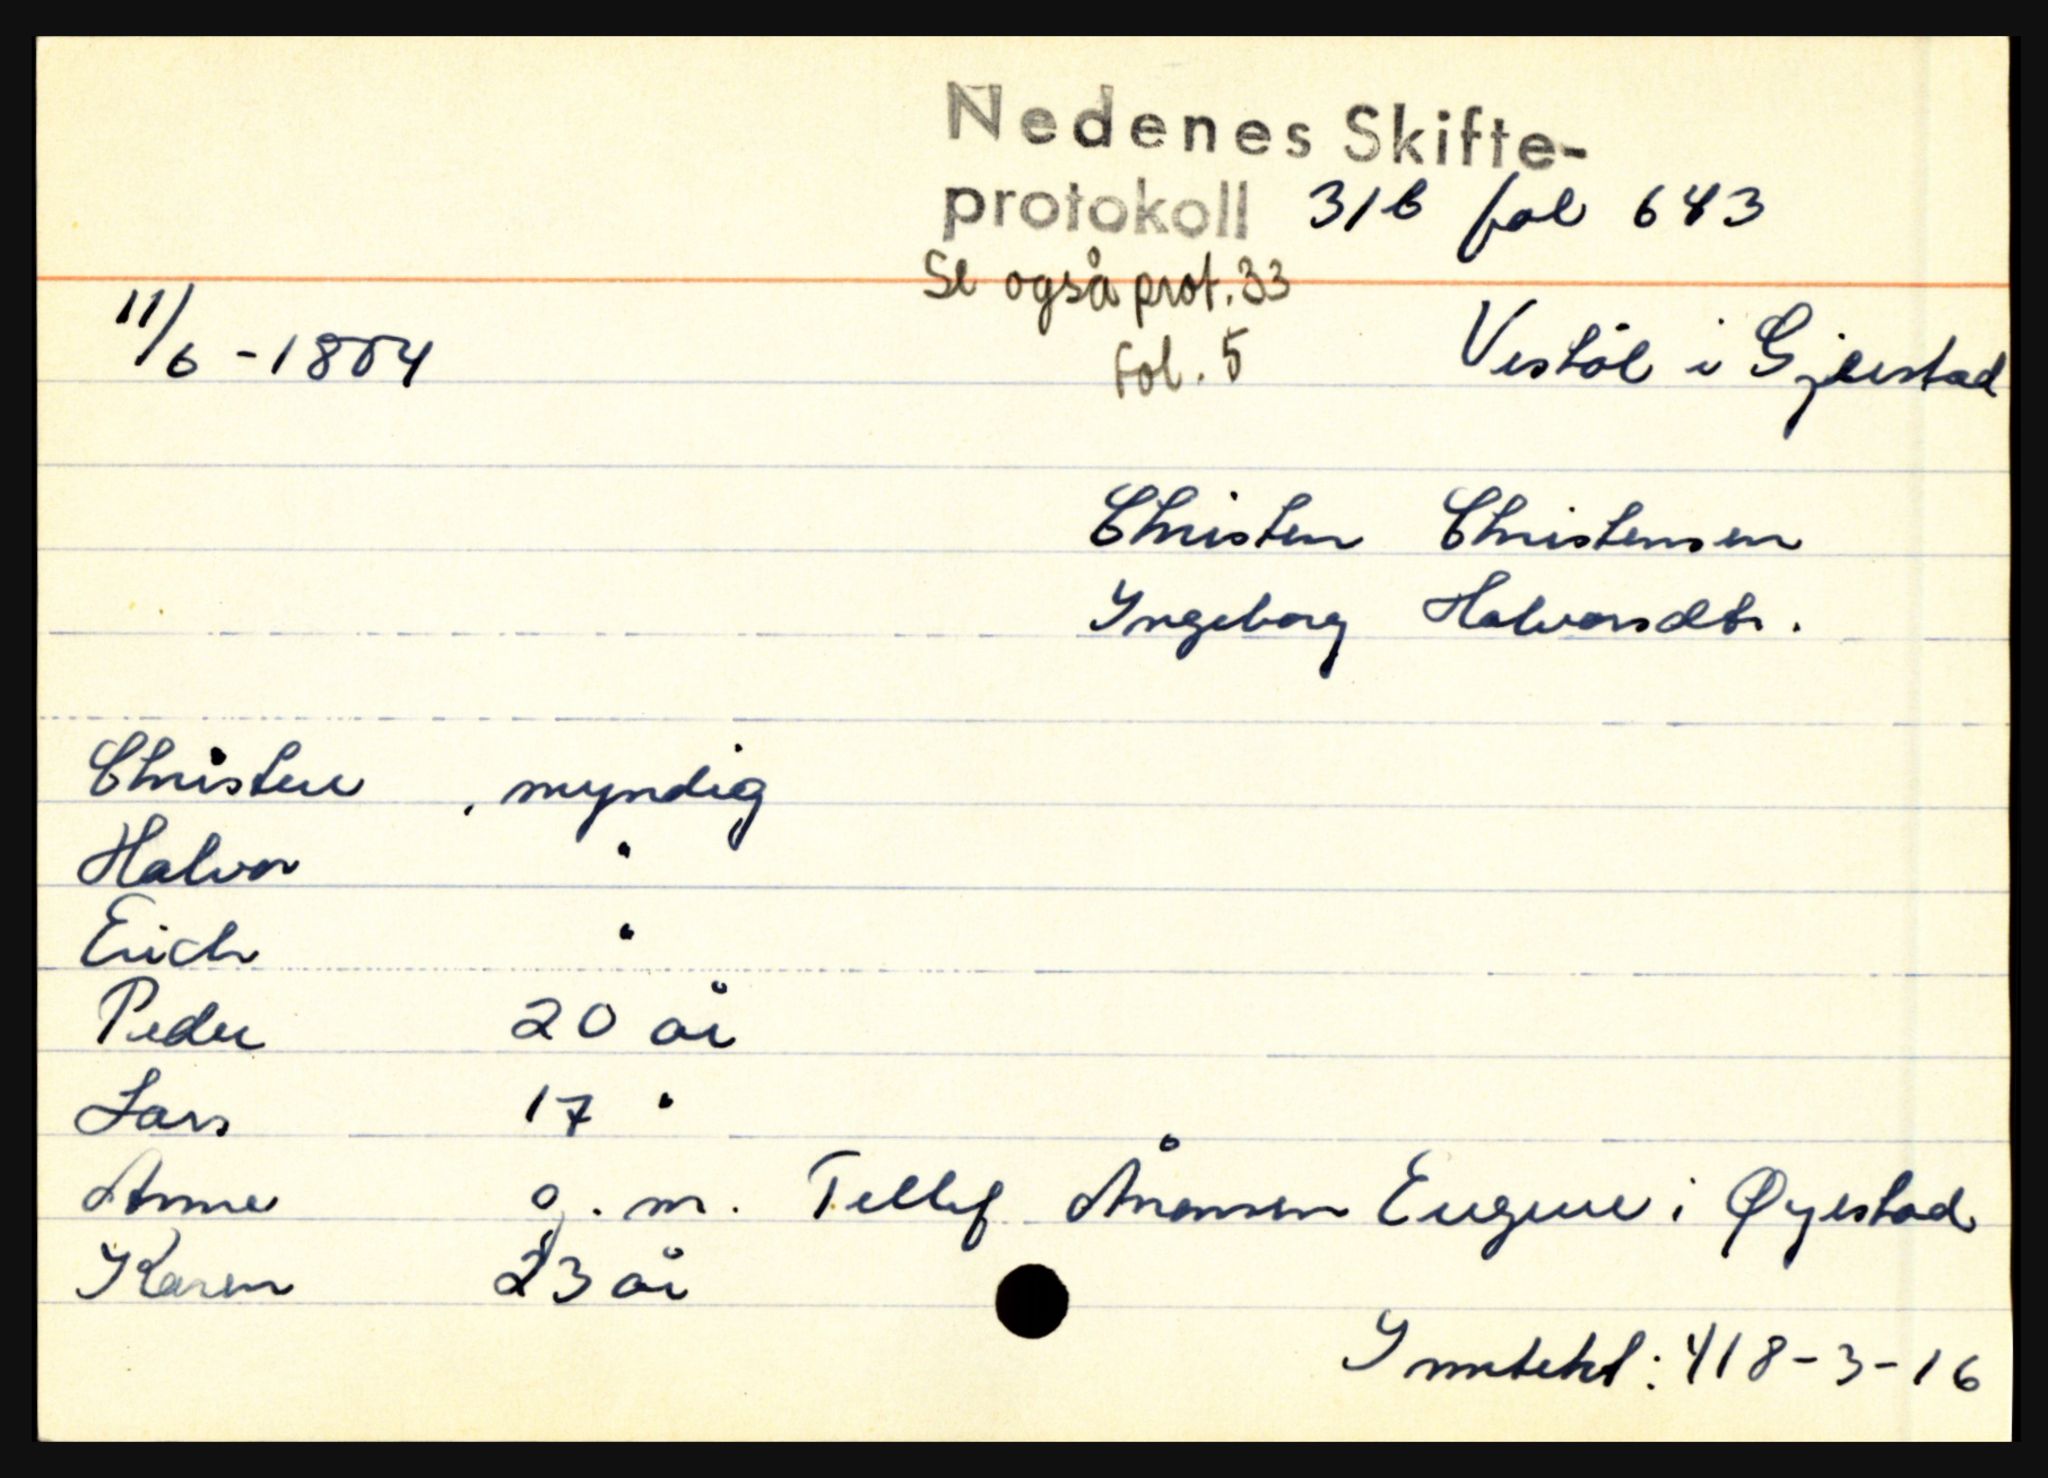 Nedenes Skifte-
protokoll 31b fol 643
Se også prot. 33
fol. 5
11/6 - 1804
Vestöl i Gjerstad
Christen Christensen
Ingeborg Halvorsdtr.
Christen , myndig
Halvor "
Erich "
Peder 20 år
Lars 17 "
Anne g. m. Tellef Ånonsen Eugene i Øyestad
Karen 23 år
Inntekt: 418-3-16